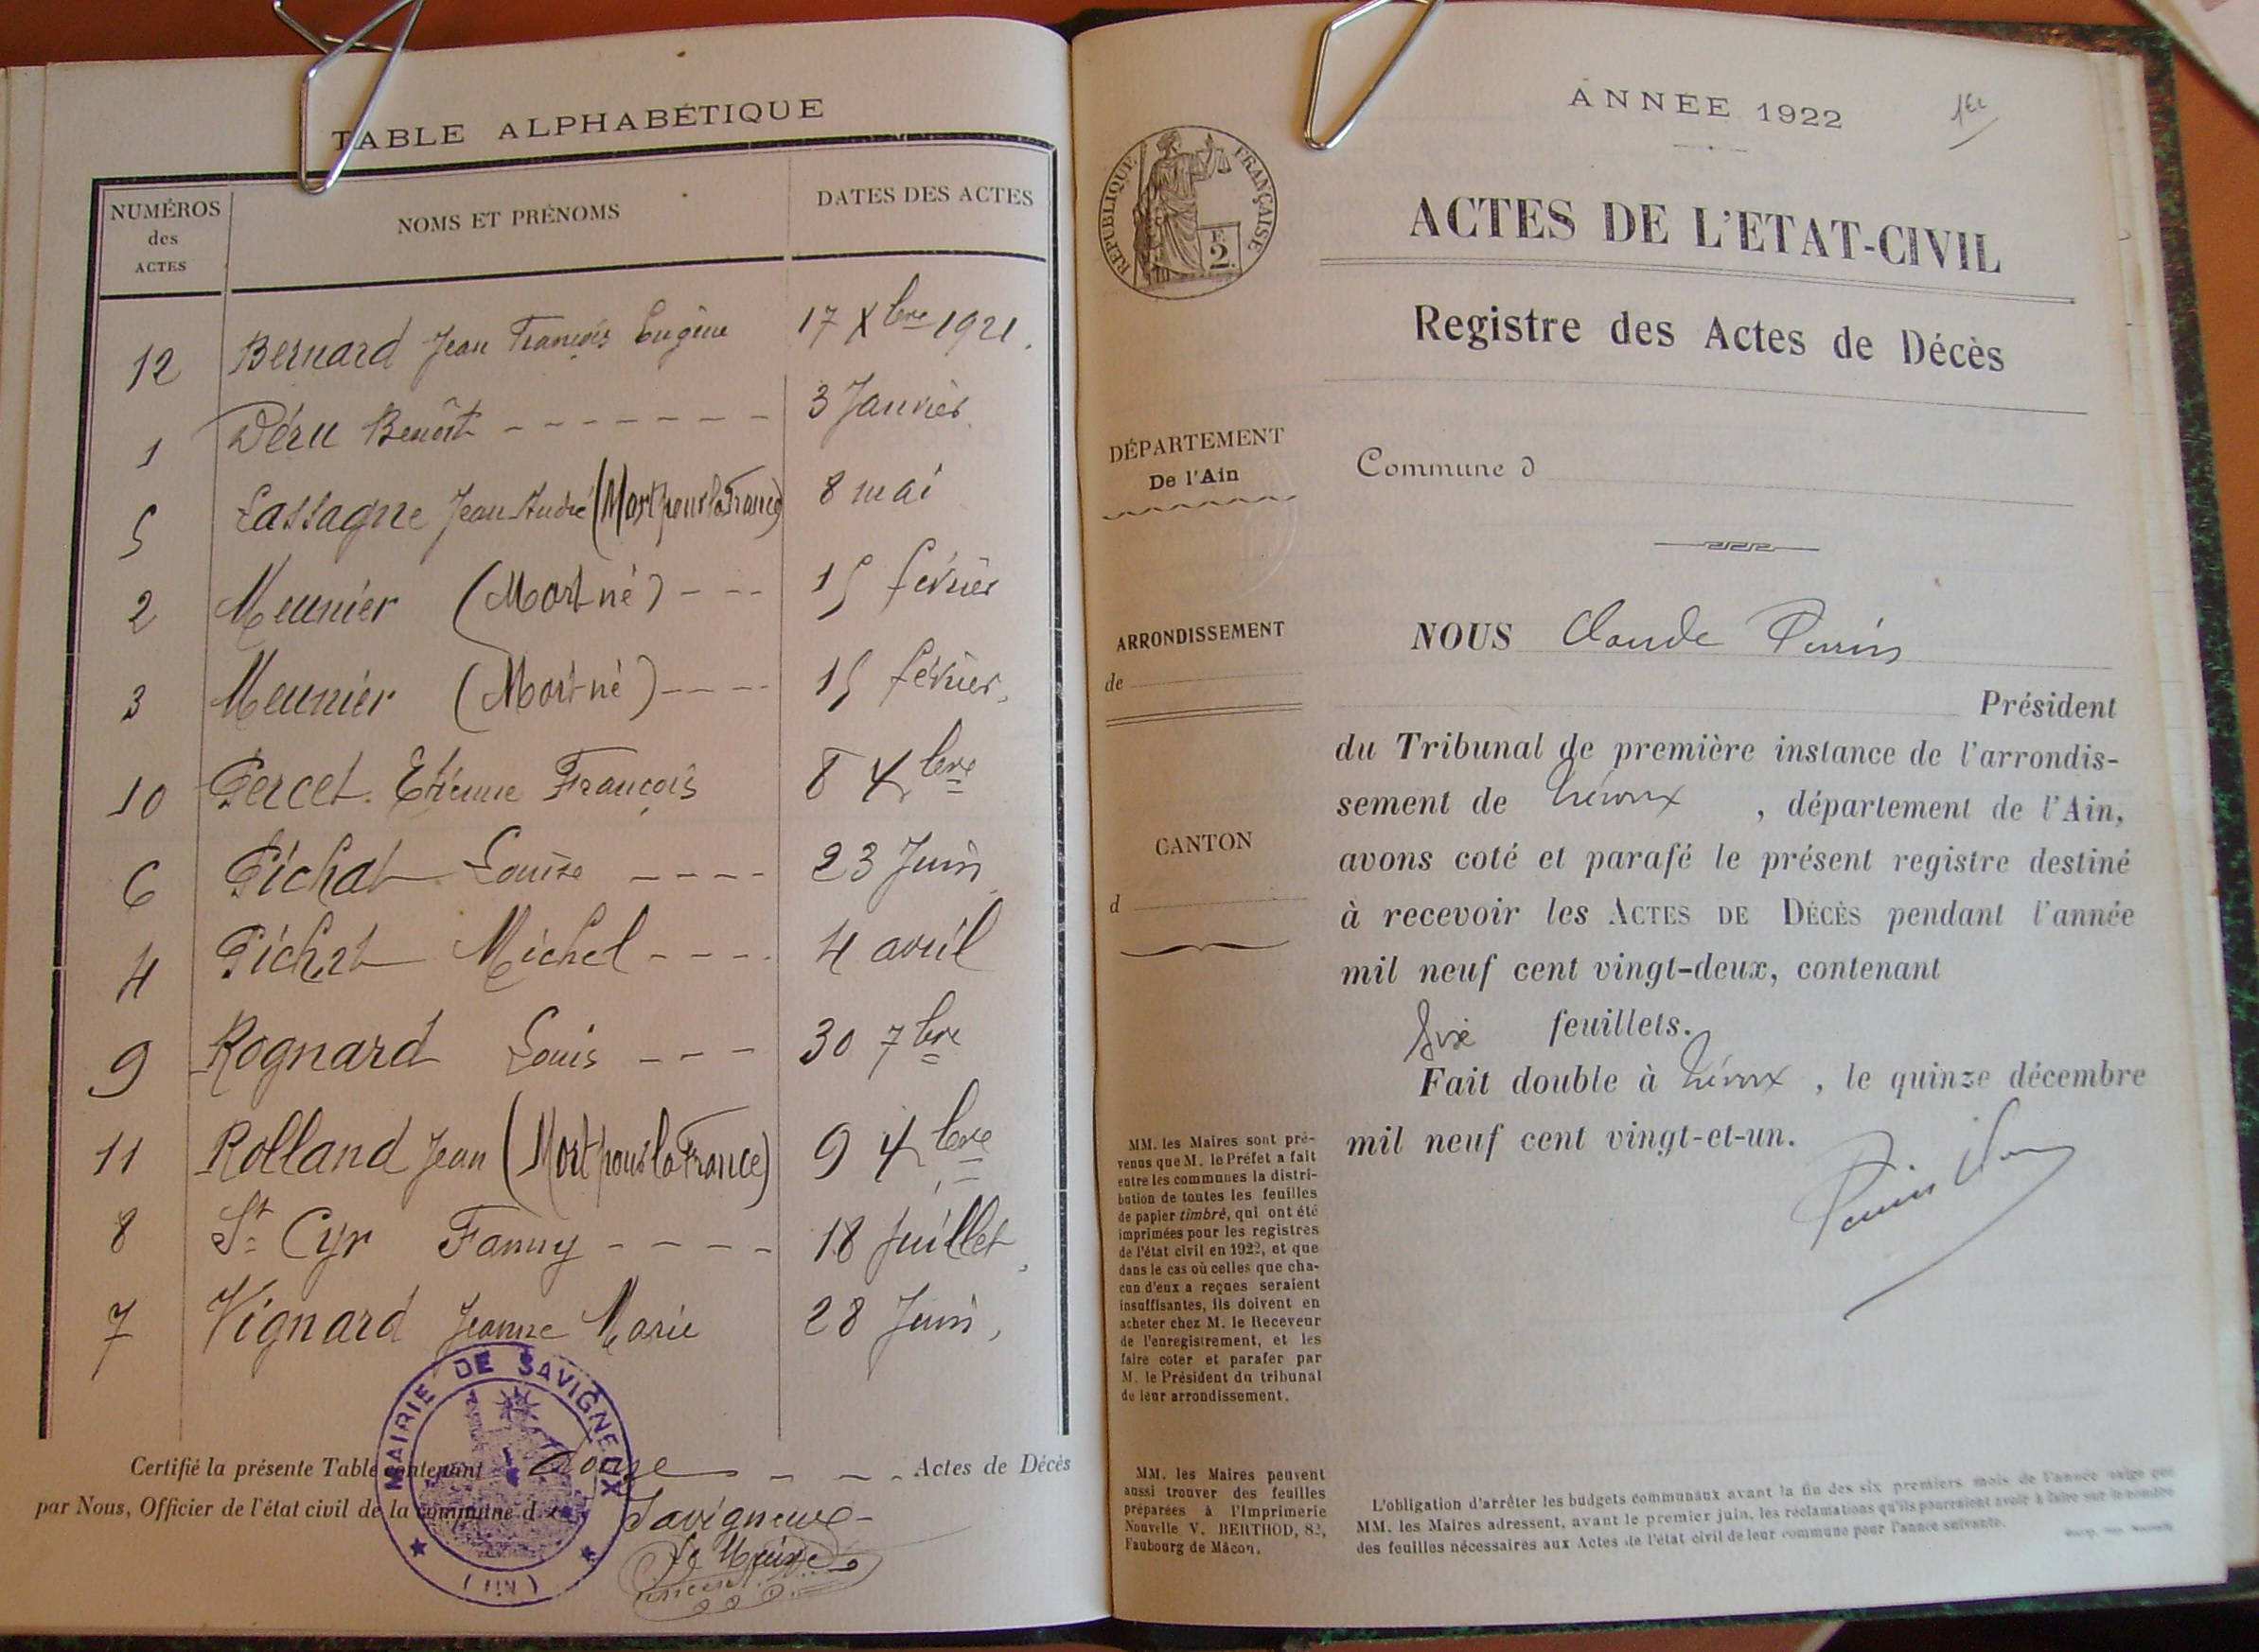 TABLE ALPHABÉTIQUE
NUMÉROS des ACTES
NOMS ET PRÉNOMS
DATES DES ACTES
12 Bernard Jean François Eugène 17 Xbre 1921.
1 Déru Benoît - - - - - - - 3 Janvier.
5 Lassagne Jean André (Mort pour la France) 8 mai
2 Meunier (Mort-né) - - - 15 février
3 Meunier (Mort-né) - - - - 15 février.
10 Percet Etienne François 8 Xbre
6 Pichat Louise - - - - 23 Juin
4 Pichat Michel - - - - 4 avril
9 Rognard Louis - - - 30 7bre
11 Rolland Jean (Mort pour la France) 9 Xbre
8 St Cyr Fanny - - - - 18 Juillet
7 Vignard Jeanne Marie 28 Juin,
MAIRIE DE SAVIGNEUX
(AIN)
Certifié la présente Table contenant douze - - - Actes de Décès
par Nous, Officier de l'état civil de la commune de
Savigneux
Le Maire
ANNÉE 1922
1er
RÉPUBLIQUE FRANÇAISE
F.
2.
ACTES DE L'ETAT-CIVIL
Registre des Actes de Décès
DÉPARTEMENT
De l'Ain
Commune d
ARRONDISSEMENT
de
CANTON
d
NOUS Claude Perrin
Président
du Tribunal de première instance de l'arrondis-
sement de Trévoux , département de l'Ain,
avons coté et parafé le présent registre destiné
à recevoir les ACTES DE DÉCÈS pendant l'année
mil neuf cent vingt-deux, contenant
Six feuillets.
Fait double à Trévoux , le quinze décembre
mil neuf cent vingt-et-un.
Perrin
MM. les Maires sont pré-
venus que M. le Préfet a fait
entre les communes la distri-
bution de toutes les feuilles
de papier timbré, qui ont été
imprimées pour les registres
de l'état civil en 1922, et que
dans le cas où celles que cha-
cun d'eux a reçues seraient
insuffisantes, ils doivent en
acheter chez M. le Receveur
de l'enregistrement, et les
faire coter et parafer par
M. le Président du tribunal
de leur arrondissement.
MM. les Maires peuvent
aussi trouver des feuilles
préparées à l'Imprimerie
Nouvelle V. BERTHOD, 82,
Faubourg de Mâcon.
L'obligation d'arrêter les budgets communaux avant la fin des six premiers mois de l'année exige que
MM. les Maires adressent, avant le premier juin, les réclamations qu'ils pourraient avoir à faire sur le nombre
des feuilles nécessaires aux Actes de l'état civil de leur commune pour l'année suivante.